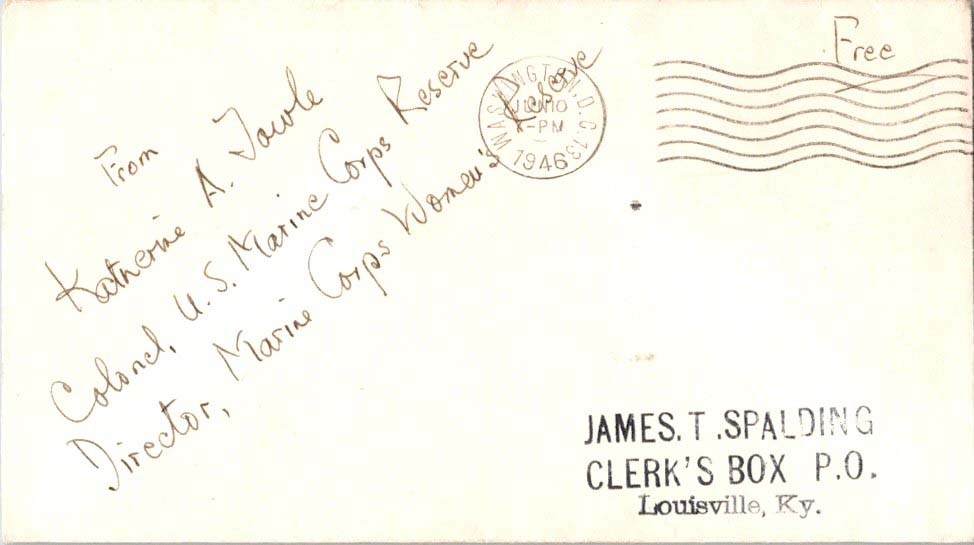 From
Katherine A. Towle
Colonel, U.S. Marine Corps Reserve
Director, Marine Corps Women's Reserve
WASHINGTON, D.C. 13
JUN 10
-PM
1946
Free
JAMES. T .SPALDING
CLERK'S BOX P.O.
Louisville, Ky.